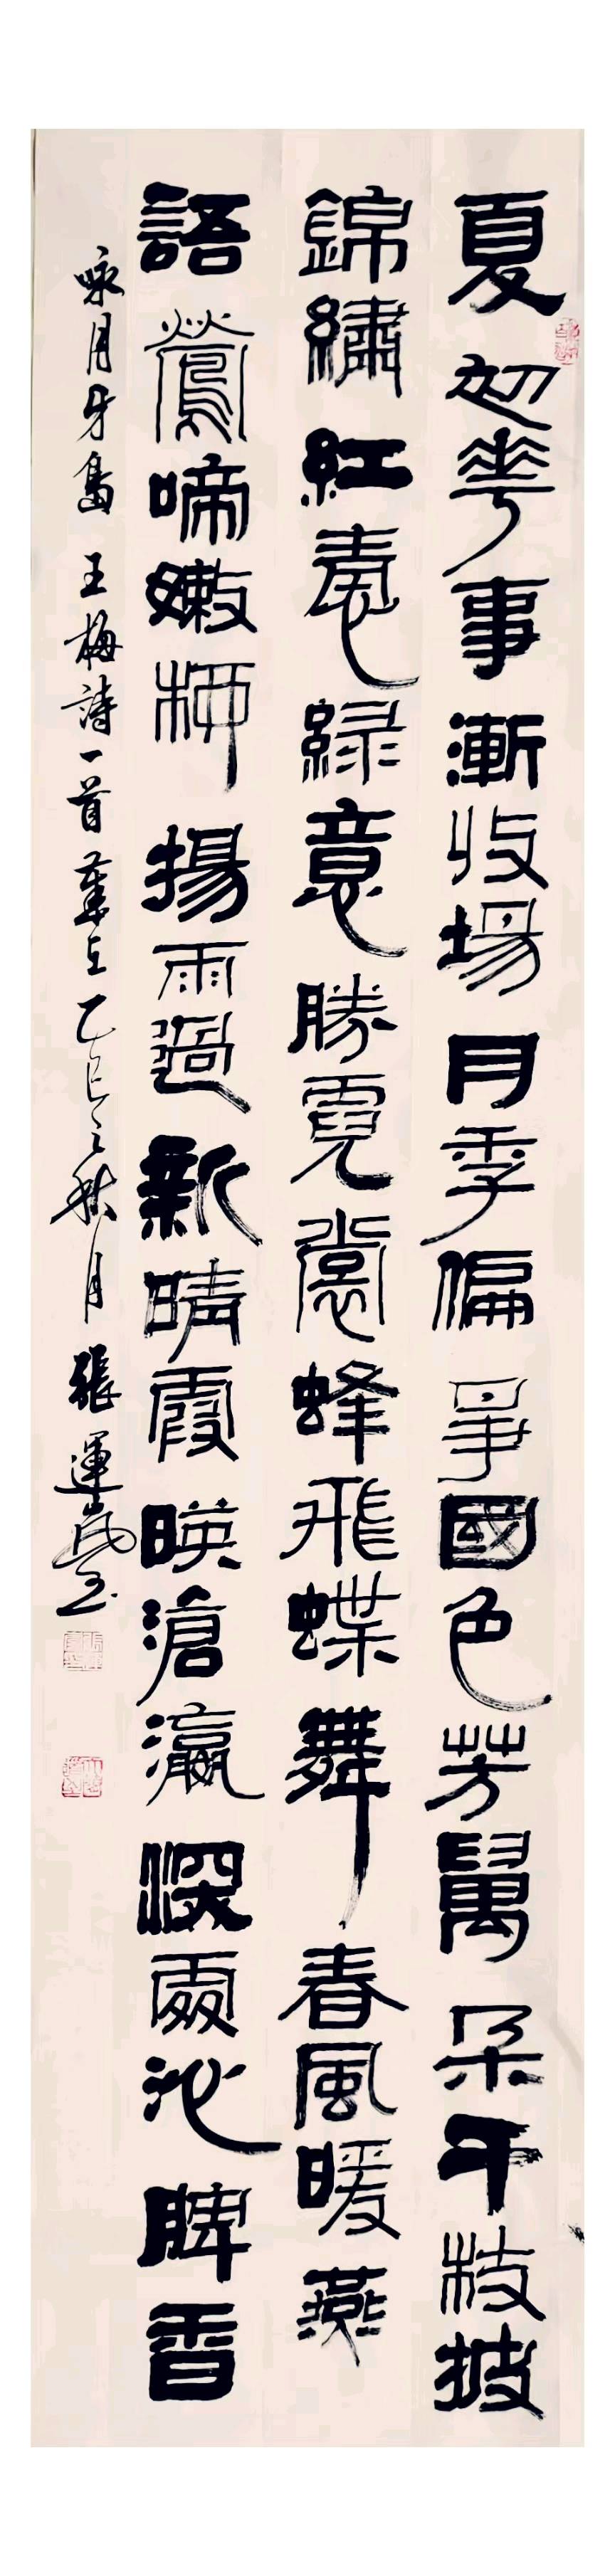 夏初華事漸收場月季偏爭國色芳萬朵千枝披
錦繡紅情綠意勝霓裳蜂飛蝶舞春風暖燕
語鶯啼嫩柳揚雨過新晴霞暎滄瀛深處沁脾香
咏月牙島 王梅詩一首 歲在乙巳之秋月 張運